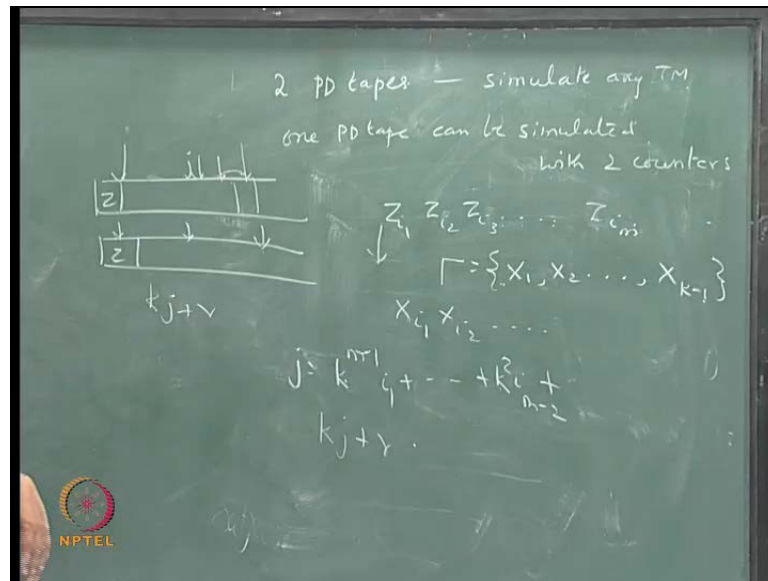 2 PD tapes — simulate any TM
one PD tape can be simulated
with 2 counters
Z
Z
kj+r
Z_{i_1} Z_{i_2} Z_{i_3} .... Z_{i_m}
Γ = {X_1, X_2 ..., X_{k-1}}
X_{i_1} X_{i_2} ....
j = k^{m-1} i_1 + --- + k^2 i_{m-2} +
kj+r.
NPTEL